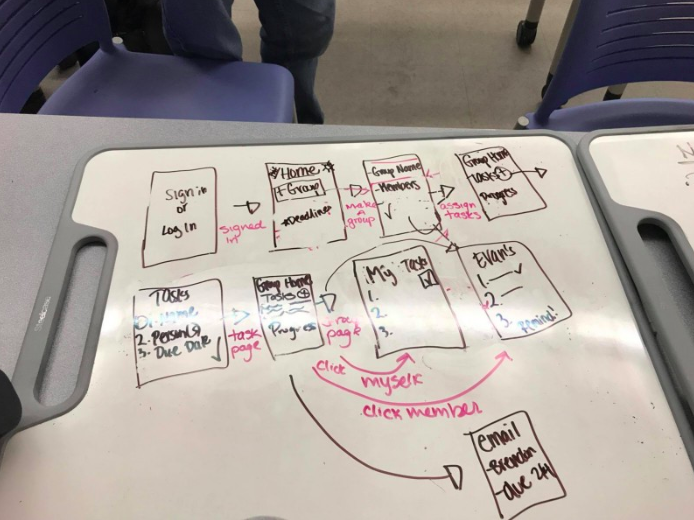 Sign in
or
Log In
signed
in
*Home*
+Group
*Deadline
make
a
group
Group Name
Members
assign
tasks
Group Home
Tasks +
Progress
Tasks
2. Person(s)
3. Due Date
task
page
Group Home
Tasks +
Progress
page
My Tasks
1.
2.
3.
Evan's
1.
2.
3.
Remind!
click
myself
click member
email
-Brendan
-due 2/4